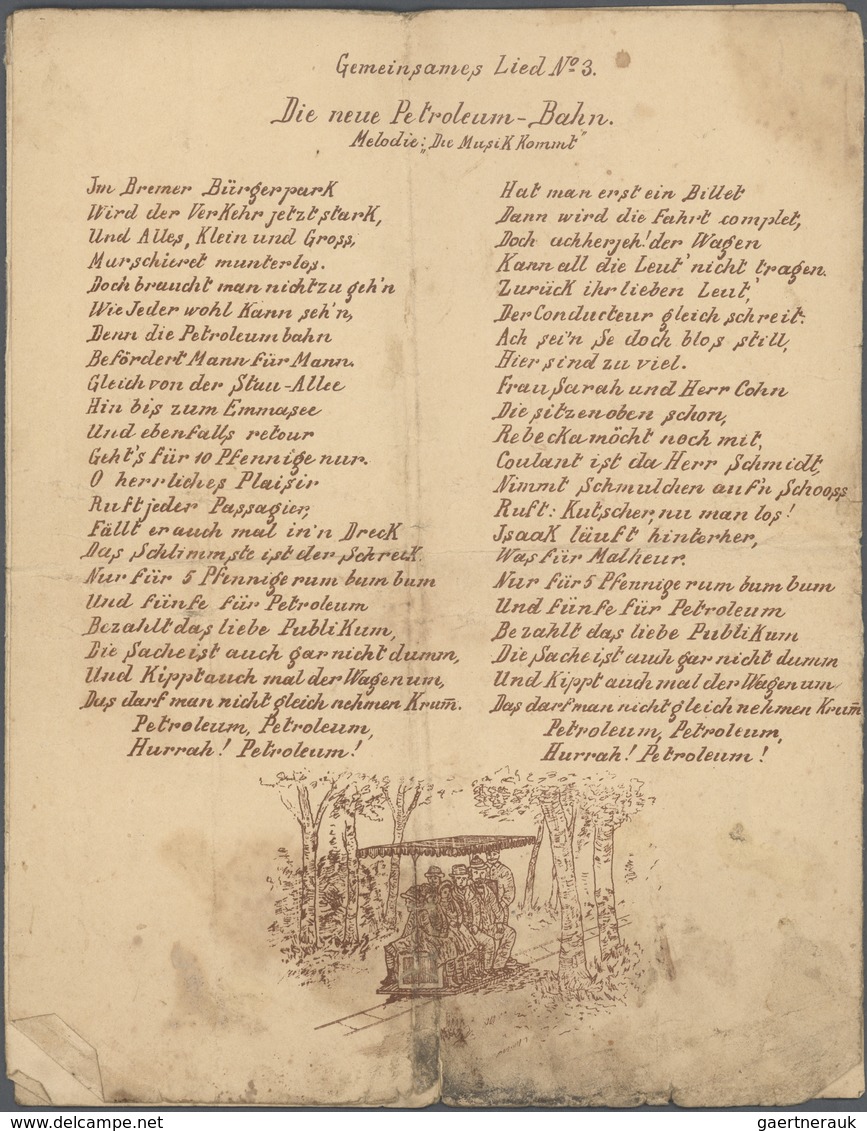 Gemeinsames Lied No 3.
Die neue Petroleum-Bahn.
Melodie: „Die Musik kommt"
Im Bremer Bürgerpark
Wird der Verkehr jetzt stark,
Und Alles, Klein und Gross,
Marschieret munter los.
Doch braucht man nicht zu geh'n
Wie Jeder wohl kann seh'n,
Denn die Petroleumbahn
Befördert Mann für Mann.
Gleich von der Stau-Allee
Hin bis zum Emmasee
Und ebenfalls retour
Geht's für 10 Pfennige nur.
O herrliches Plaisir
Ruft jeder Passagier,
Fällt er auch mal in'n Dreck
Das Schlimmste ist der Schreck.
Nur für 5 Pfennige rum bum bum
Und fünfe für Petroleum
Bezahlt das liebe Publikum,
Die Sache ist auch gar nicht dumm,
Und kippt auch mal der Wagen um,
Das darf man nicht gleich nehmen krum̄.
Petroleum, Petroleum,
Hurrah! Petroleum!
Hat man erst ein Billet
Dann wird die Fahrt complet,
Doch achherjeh! der Wagen
Kann all die Leut' nicht tragen.
Zurück ihr lieben Leut',
Der Conducteur gleich schreit.
Ach sei'n Se doch blos still,
Hier sind zu viel.
Frau Sarah und Herr Cohn
Die sitzen oben schon,
Rebecka möcht noch mit,
Coulant ist da Herr Schmidt,
Nimmt Schmulchen auf'n Schooss
Ruft: Kutscher, nu man los!
Isaak läuft hinterher,
Was für Malheur.
Nur für 5 Pfennige rum bum bum
Und fünfe für Petroleum
Bezahlt das liebe Publikum
Die Sache ist auch gar nicht dumm
Und kippt auch mal der Wagen um
Das darf man nicht gleich nehmen krum̄
Petroleum, Petroleum,
Hurrah! Petroleum!
www.delcampe.net
gaertnerauk